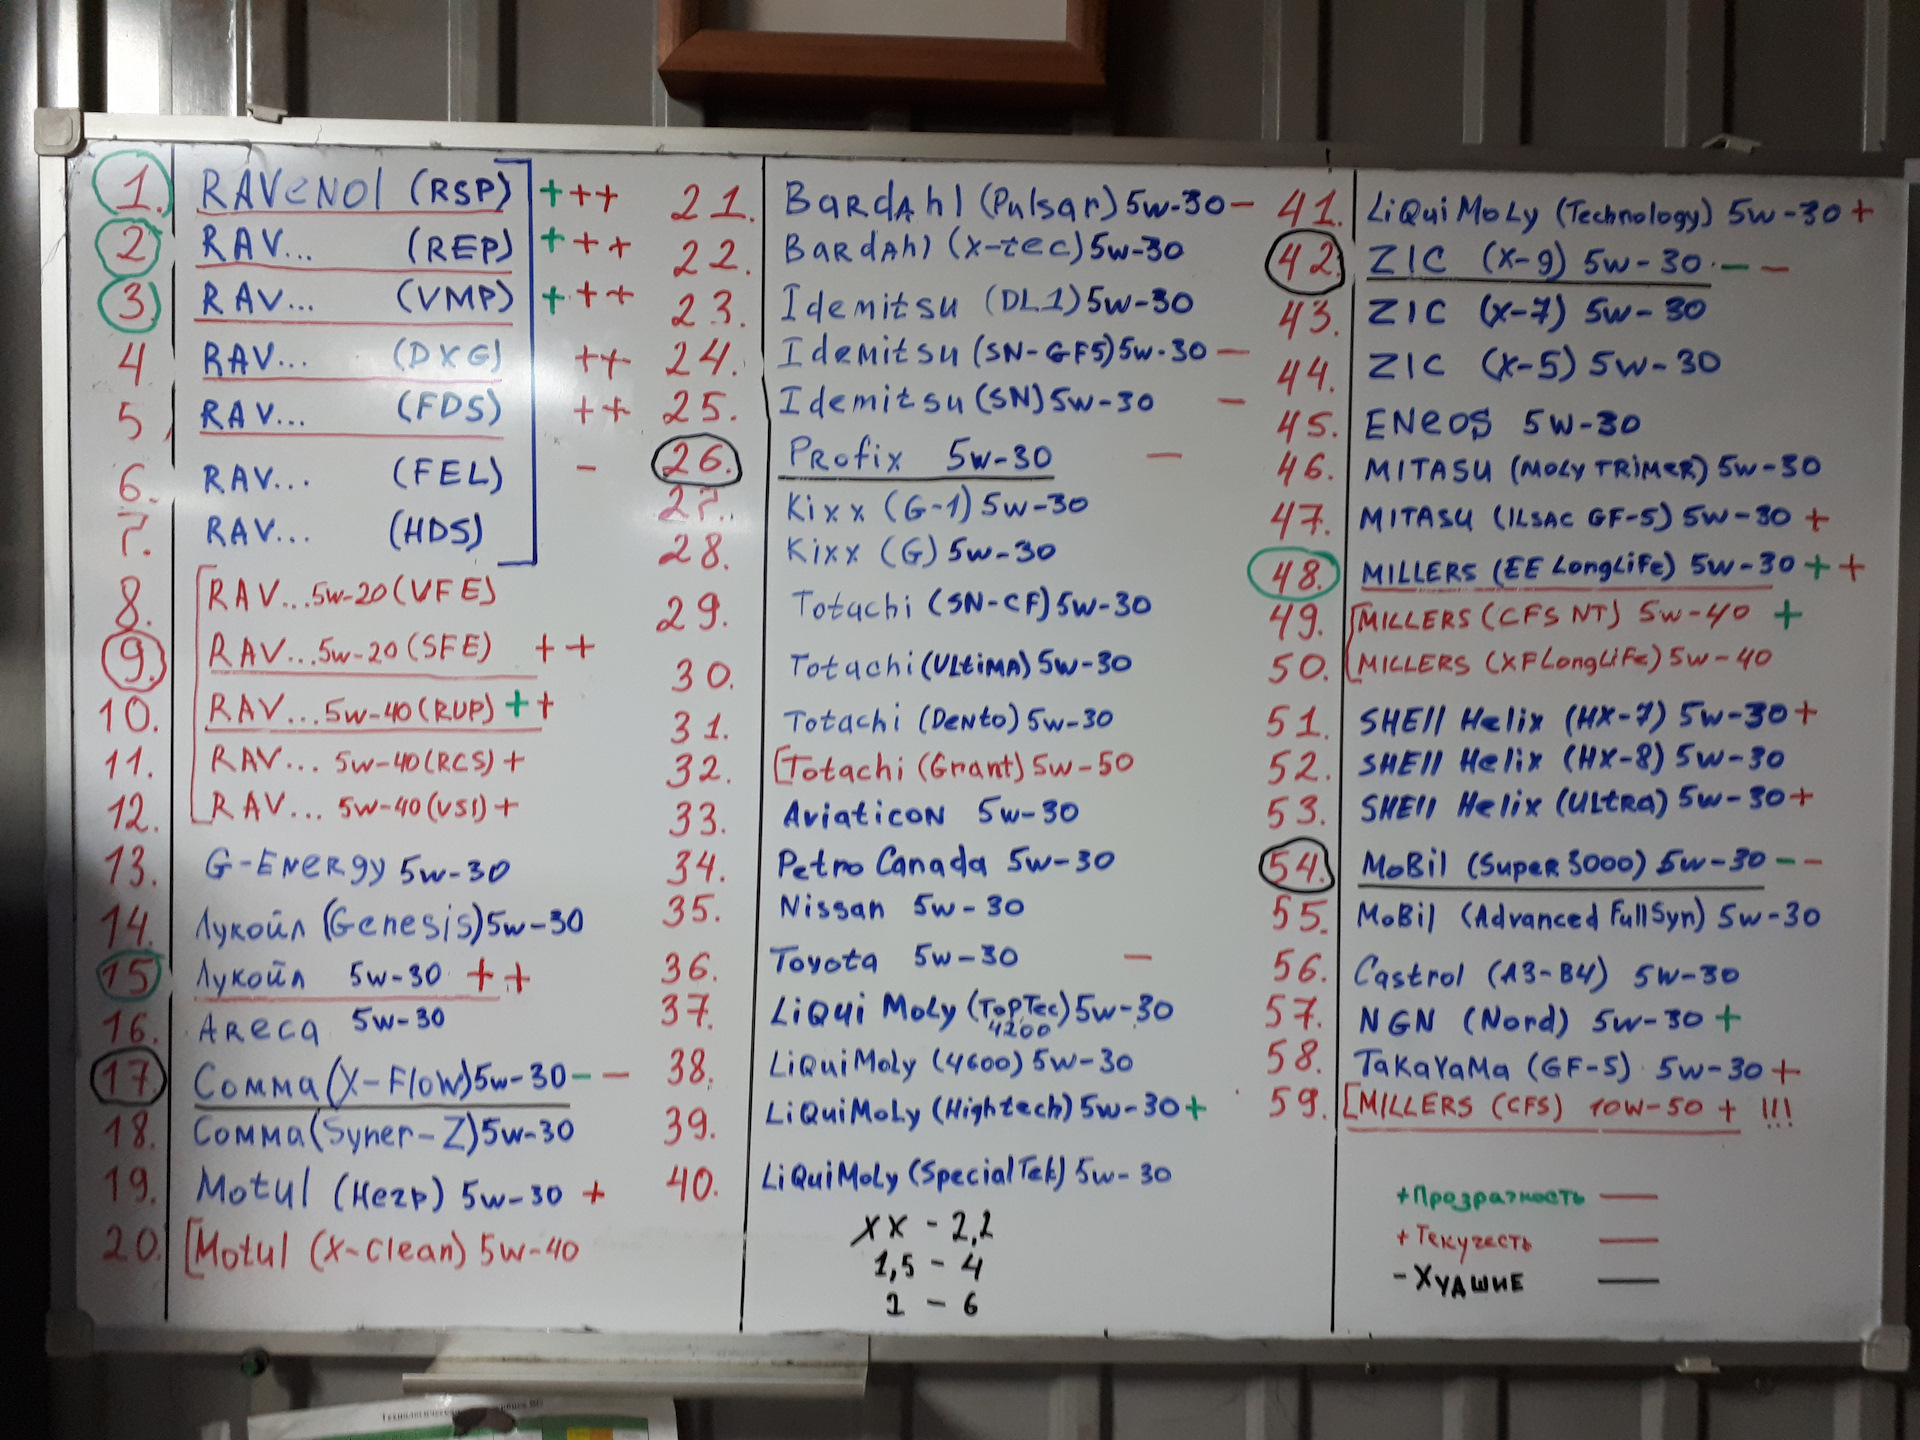 1. RAVENOL (RSP) +++
2 RAV... (REP) +++
3. RAV... (VMP) +++
4 RAV... (DXG) ++
5 RAV... (FDS) ++
6. RAV... (FEL) -
7. RAV... (HDS)
8. RAV...5w-20(VFE)
9. RAV...5w-20(SFE) ++
10. RAV...5w-40(RUP) ++
11. RAV... 5w-40(RCS) +
12. RAV... 5w-40(VSI) +
13. G-ENERGY 5w-30
14. Лукойл (Genesis)5w-30
15 Лукойл 5w-30 ++
16. ARECA 5w-30
17. COMMA(X-Flow)5w-30--
18. COMMA(Syner-Z)5w-30
19. Motul (Негр) 5w-30 +
20. [Motul (X-Clean) 5w-40
21. BARdAhl (Pulsar) 5w-30-
22. BARdAhl (X-tec)5w-30
23. Idemitsu (DL1)5w-30
24. Idemitsu (SN-GF5)5w-30 -
25. Idemitsu (SN)5w-30 -
26. PRofix 5w-30 -
27. Kixx (G-1) 5w-30
28. Kixx (G) 5w-30
29. Totachi (SN-CF)5w-30
30. Totachi (ULtiMA) 5w-30
31. Totachi (Dento) 5w-30
32. [Totachi (Grant) 5w-50
33. AviaticoN 5w-30
34. Petro Canada 5w-30
35. Nissan 5w-30
36. Toyota 5w-30 -
37. LiQui MoLy (TopTec)5w-30
4200
38. LiQuiMoLy (4600) 5w-30
39. LiQuiMoLy (Hightech) 5w-30+
40. LiQuiMoLy (SpecialTek) 5w-30
XX - 2,2
1,5 - 4
1 - 6
41. LiQuiMoLy (Technology) 5w-30 +
42. ZIC (X-9) 5w-30 - -
43. ZIC (X-7) 5w-30
44. ZIC (X-5) 5w-30
45. ENeoS 5w-30
46. MITASU (MOLY TRiMER) 5w-30
47. MITASU (ILSAC GF-5) 5w-30 +
48. MILLERS (EE LongLiFe) 5w-30 ++
49. [MILLERS (CFS NT) 5w-40 +
50. [MILLERS (XFLongLiFe) 5w-40
51. SHEll Helix (HX-7) 5w-30+
52. SHEll Helix (HX-8) 5w-30
53. SHEll Helix (ULtRa) 5w-30+
54. MoBil (Super3000) 5w-30--
55. MoBil (Advanced FullSyn) 5w-30
56. Castrol (A3-B4) 5w-30
57. NGN (Nord) 5w-30 +
58. TaKaYaMa (GF-5) 5w-30 +
59. [MILLERS (CFS) 10W-50 + !!!
+Прозрачность —
+Текучесть —
-Худшие —